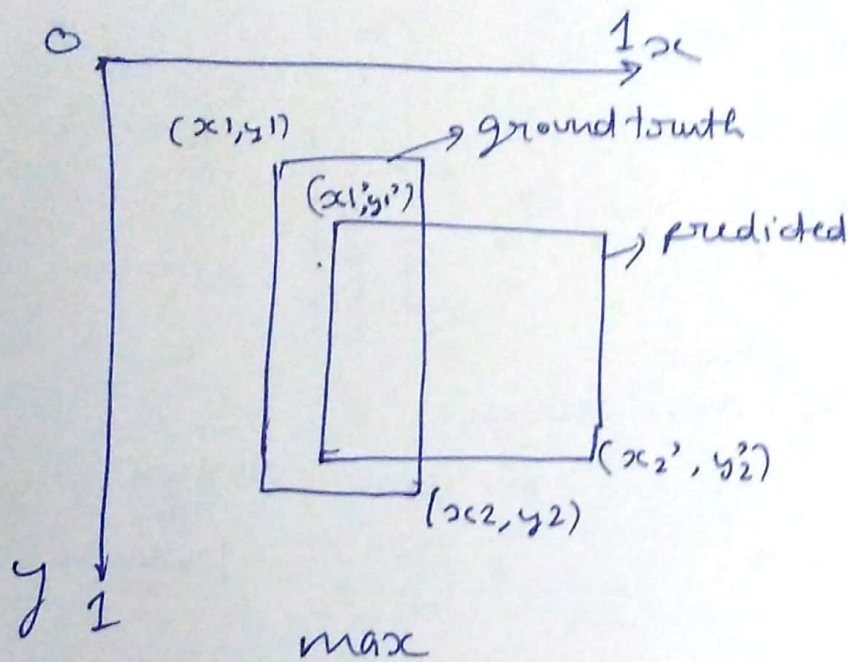 0
1 x
(x1,y1)
ground truth
(x1',y1')
predicted
(x2', y2')
(x2, y2)
y
1
max